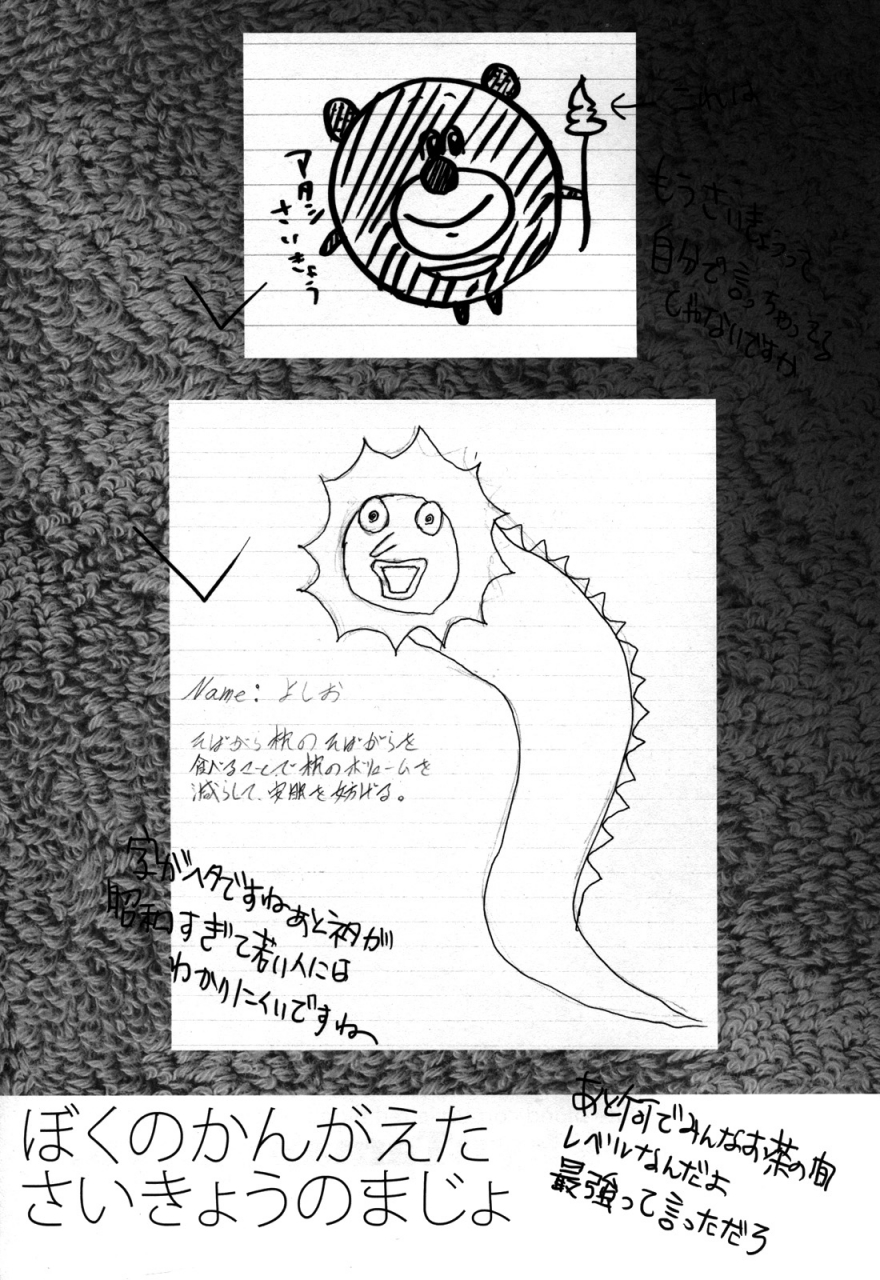 アタシ
さいきょう
これは
もうさいきょうって
自分で言っちゃってる
じゃないですか
Name: よしお
そばがら枕のそばがらを
食べることで枕のボリュームを
減らして、安眠を妨げる。
字がヘタですねあとネタが
昭和すぎて若い人には
わかりにくいですね
あと何でみんなお茶の間
レベルなんだよ
最強って言っただろ
ぼくのかんがえた
さいきょうのまじょ